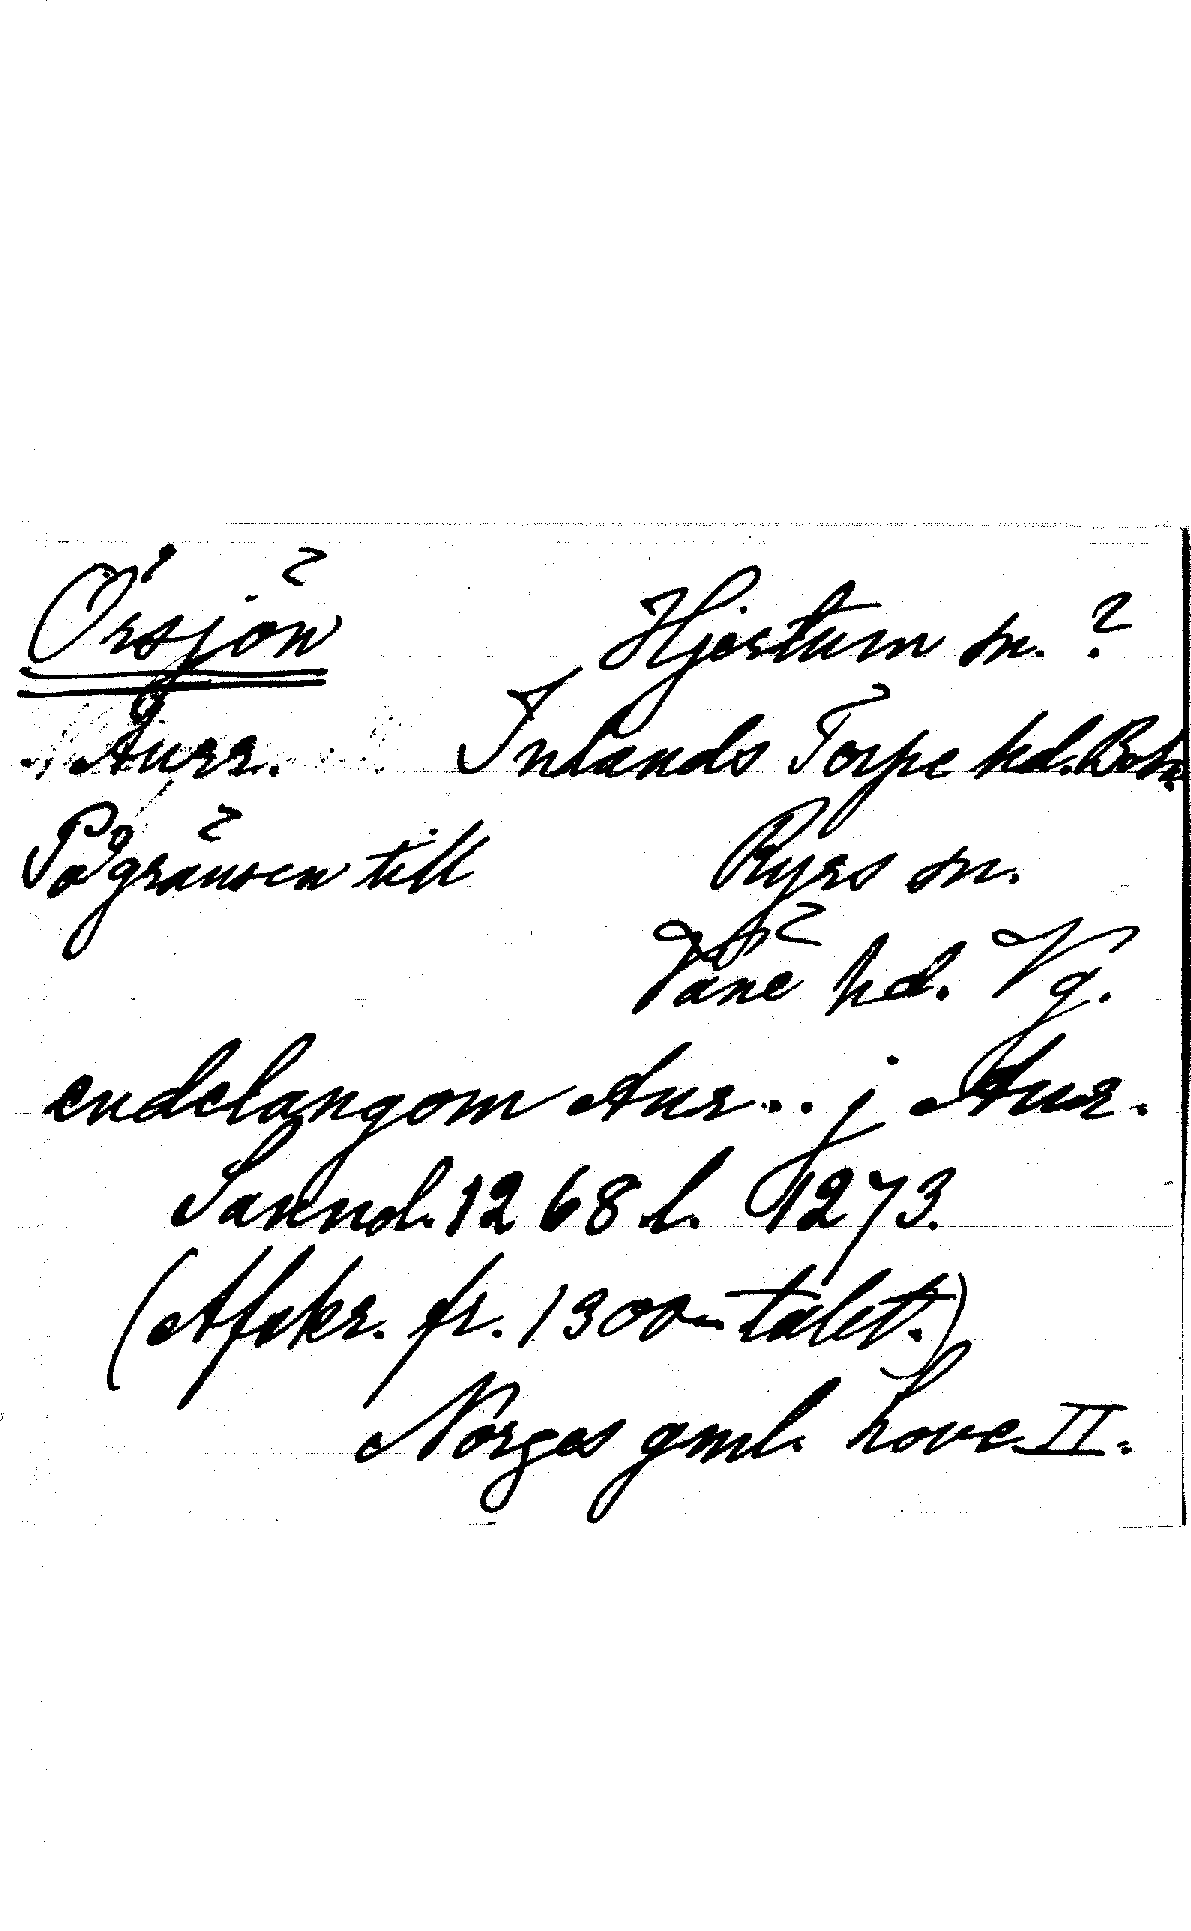 Örsjön Hjertum sn. ?
Aurr. Inlands Torpe hd. Boh.
På gränsen till Ryrs sn.
Väne hd. Vg.
endelangom Aur... j Aur.
Sannol. 1268 l. 1273.
(Afskr. fr. 1300-talet.)
Norges gml. love II.